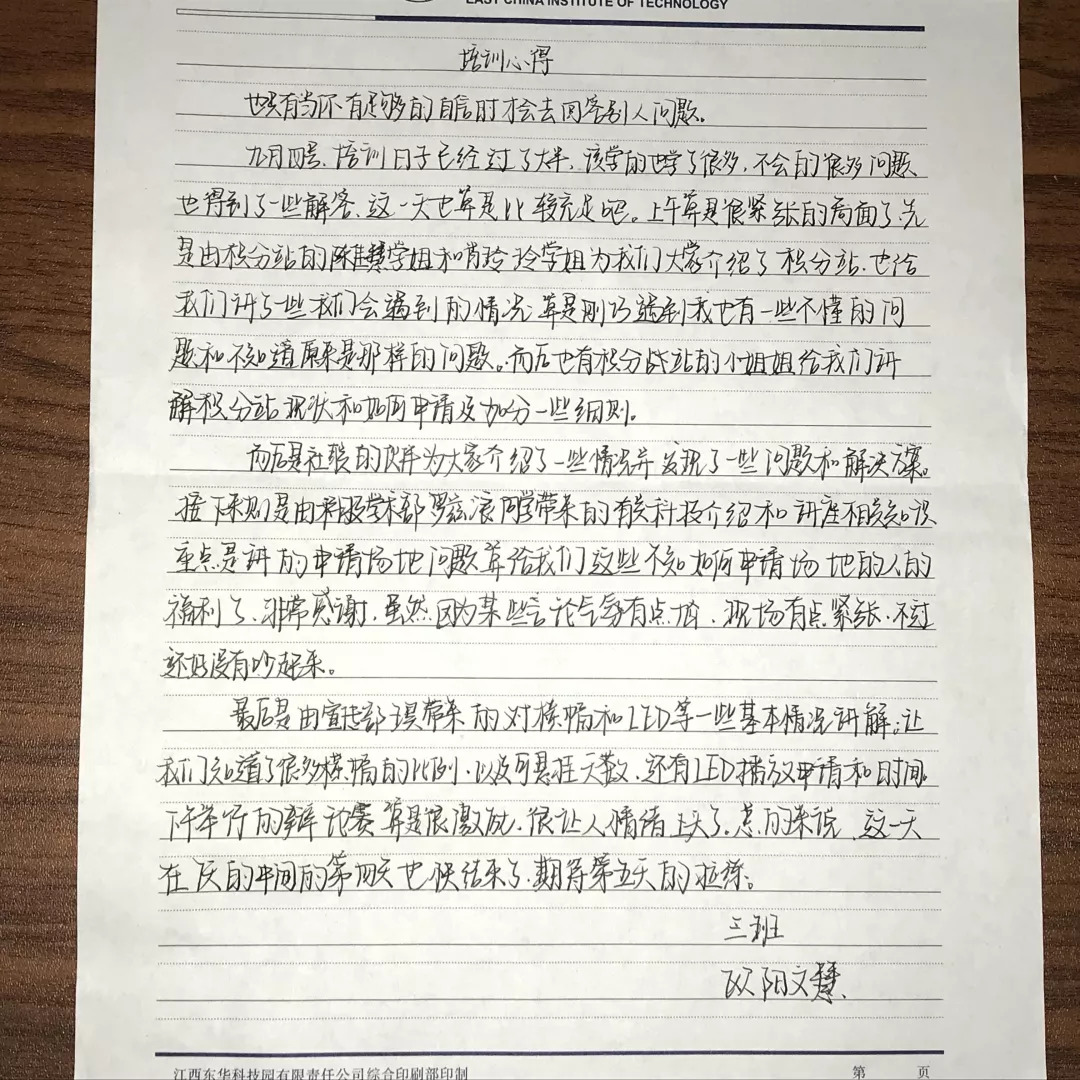 EAST CHINA INSTITUTE OF TECHNOLOGY
培训心得
也只有当你有足够的自信时才会去回答别人问题。
九月四号,培训日子已经过了大半,该学的也学了很多,不会的很多问题
也得到了一些解答,这一天也算是比较充足吧。上午算是很紧张的局面了,先
是由积分站的陈佳慧学姐和肖玲玲学姐为我们大家介绍了积分站,也给
我们讲了一些我们会遇到的情况,算是刚巧遇到我也有一些不懂的问
题和不知道原来是那样的问题。而后也有积分站的小姐姐给我们讲
解积分站现状和如何申请及加分一些细则。
而后是社联的伙伴为大家介绍了一些情况并发现了一些问题和解决方案。
接下来则是由科服学术部罗滚同学带来的有关科技介绍和讲座相关知识
重点是讲的申请场地问题算给我们这些不知如何申请场地的人的
福利了,非常感谢,虽然因为某些言论气氛有点,现场有点紧张,不过
还好没有吵起来。
最后是由宣传部带来的对横幅和LED等一些基本情况讲解,让
我们知道了很多横幅的比例,以及可悬挂天数,还有LED播放申请和时间。
下午举行的辩论赛算是很激烈,很让人情绪上头了,总的来说,这一天
在的中间的第四天也快结束了,期待第五天的拉练。
三班
欧阳文慧
江西东华科技园有限责任公司综合印刷部印制 第 页